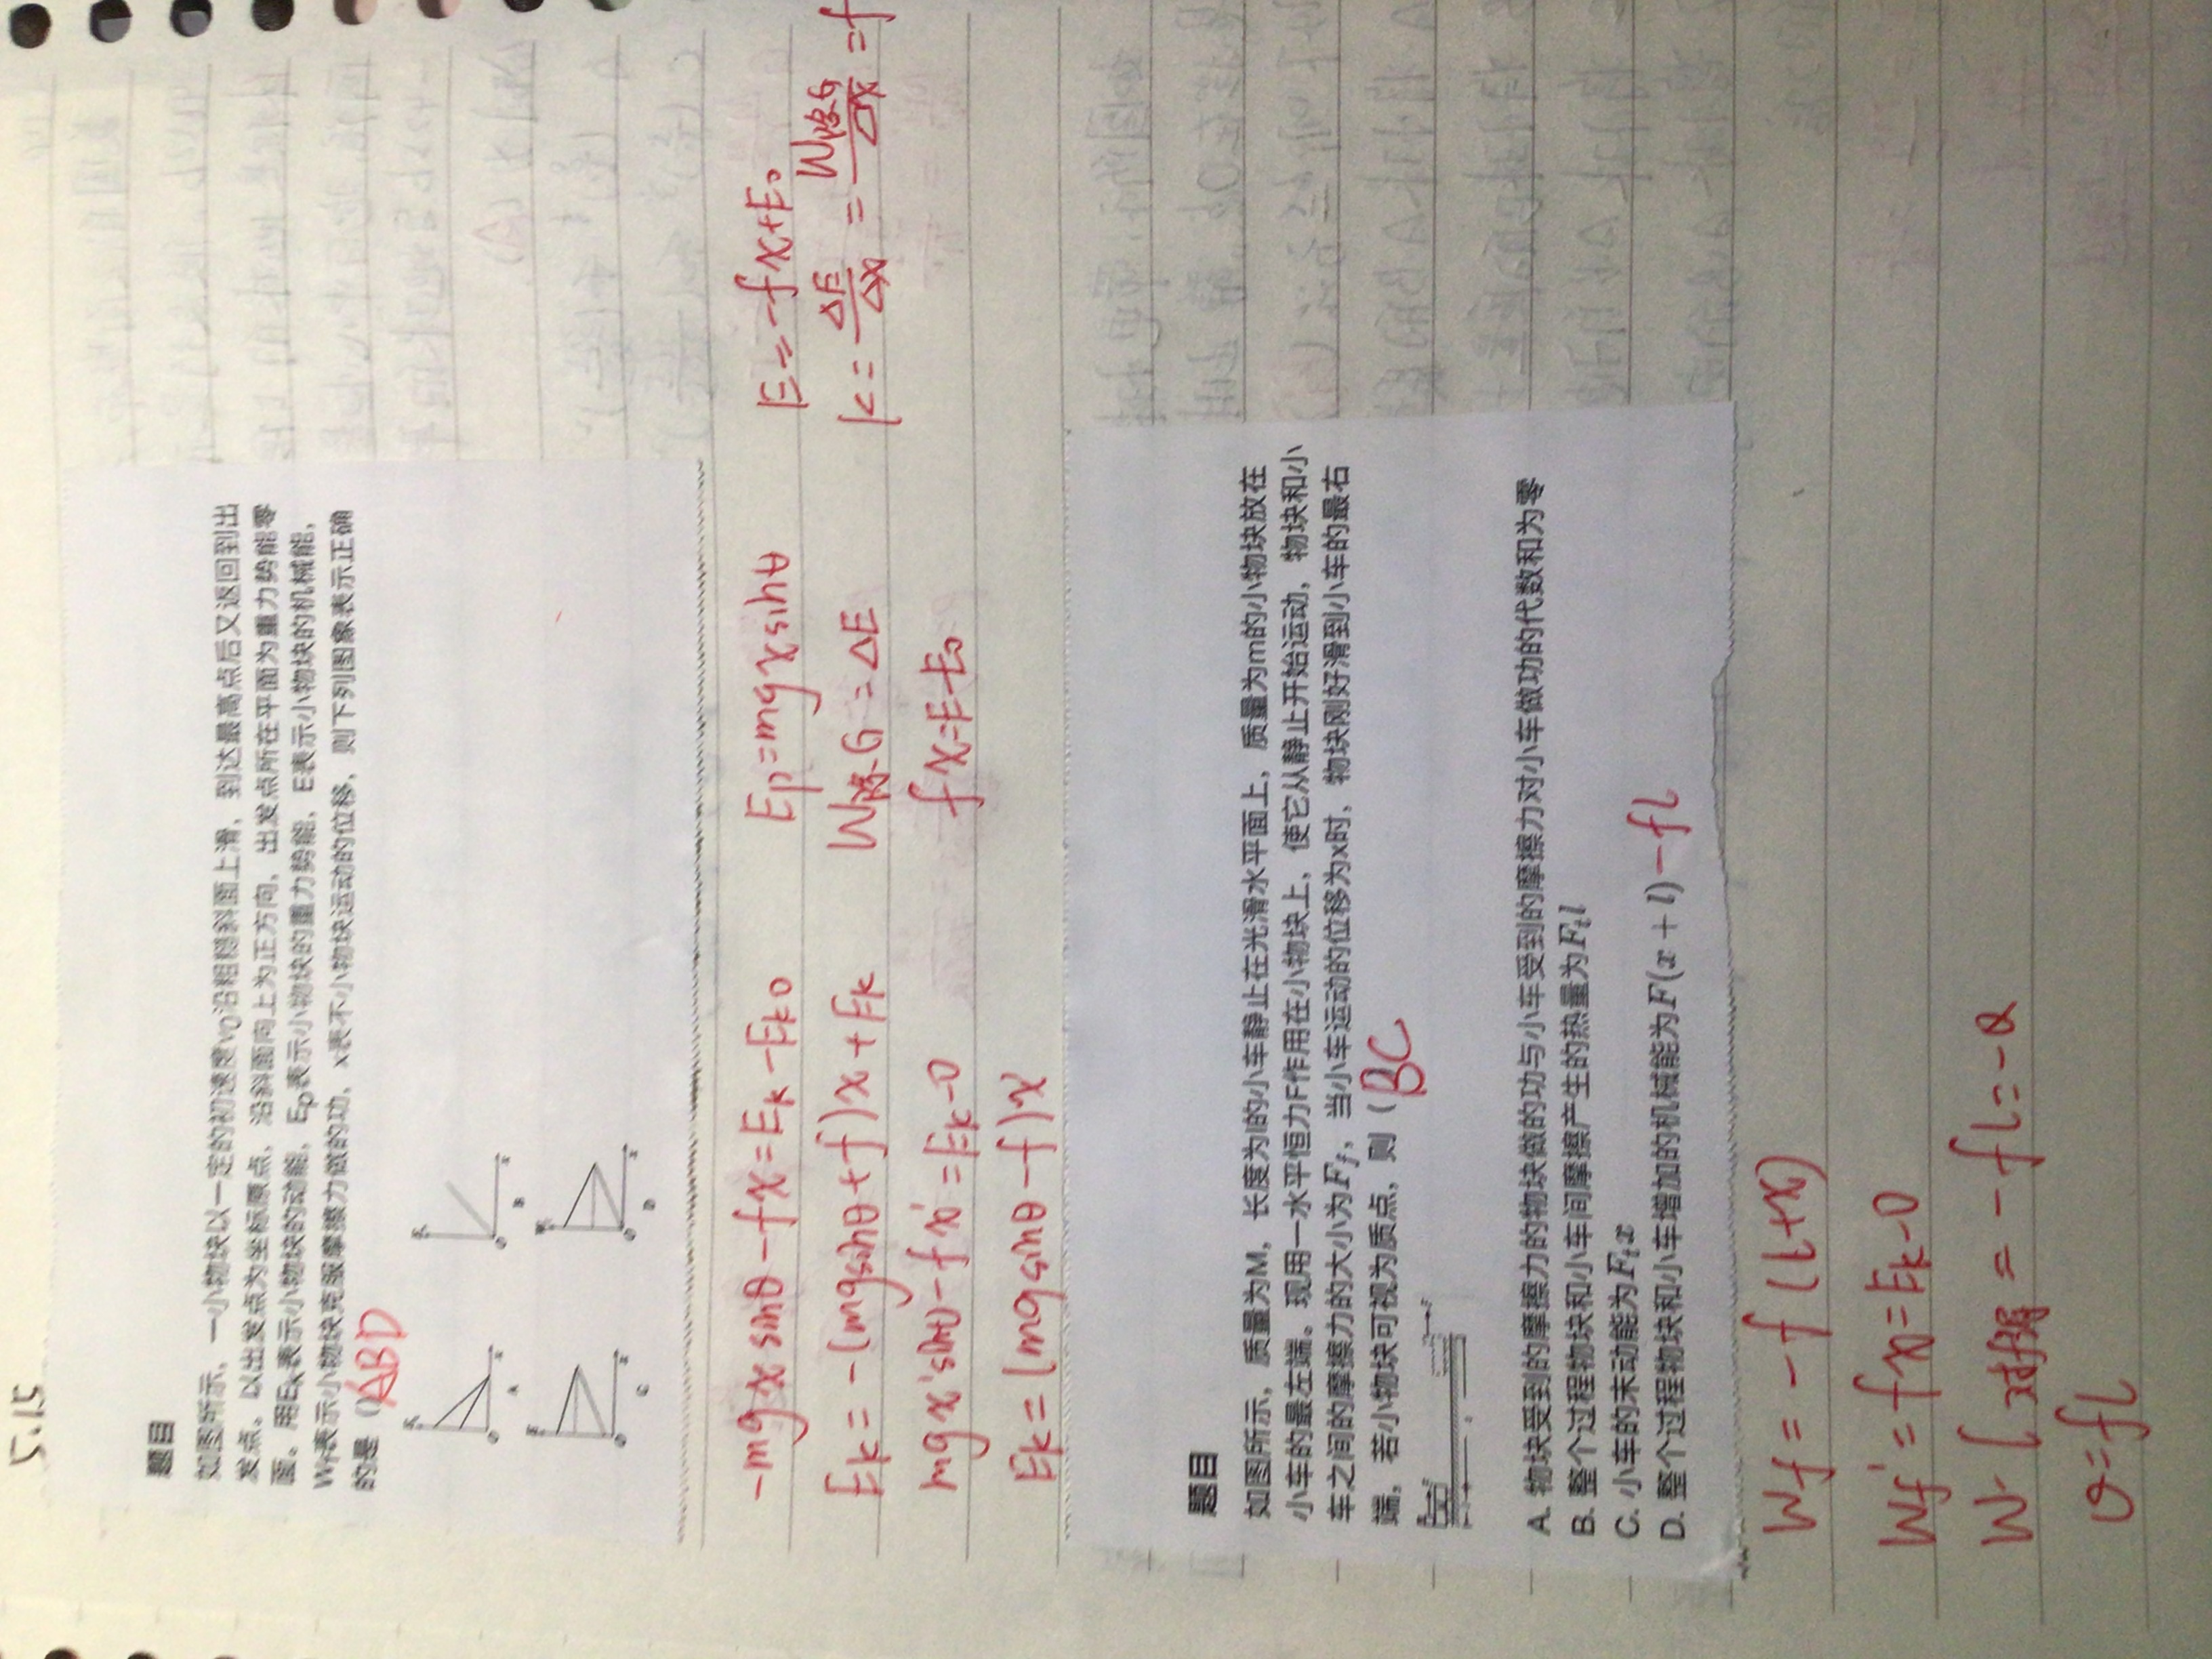 5.15
题目
如图所示，一小物块以一定的初速度v0沿粗糙斜面上滑，到达最高点后又返回到出
发点。以出发点为坐标原点，沿斜面向上为正方向，出发点所在平面为重力势能零
面。用Ek表示小物块的动能，Ep表示小物块的重力势能，E表示小物块的机械能，
Wf表示小物块克服摩擦力做的功，x表不小物块运动的位移，则下列图象表示正确
的是（）ABD
A B
C D
-mgx sinθ-fx=Ek-Ek0 Ep=mgxsinθ E=-fx+E0
Ek=-(mgsinθ+f)x+Ek W除G=ΔE k=ΔE/Δx=W除G/Δx=f
mgx'sinθ-fx'=Ek-0 fx=E-E0
Ek=(mgsinθ-f)x'
题目
如图所示，质量为M，长度为l的小车静止在光滑水平面上，质量为m的小物块放在
小车的最左端。现用一水平恒力F作用在小物块上，使它从静止开始运动，物块和小
车之间的摩擦力的大小为Ff，当小车运动的位移为x时，物块刚好滑到小车的最右
端，若小物块可视为质点，则（BC
A. 物块受到的摩擦力的物块做的功与小车受到的摩擦力对小车做功的代数和为零
B. 整个过程物块和小车间摩擦产生的热量为Ftl
C. 小车的末动能为Ftx
D. 整个过程物块和小车增加的机械能为F(x+l)-fl
Wf=-f(l+x)
Wf'=fx=Ek-0
=-fl=-Q
Q=fl